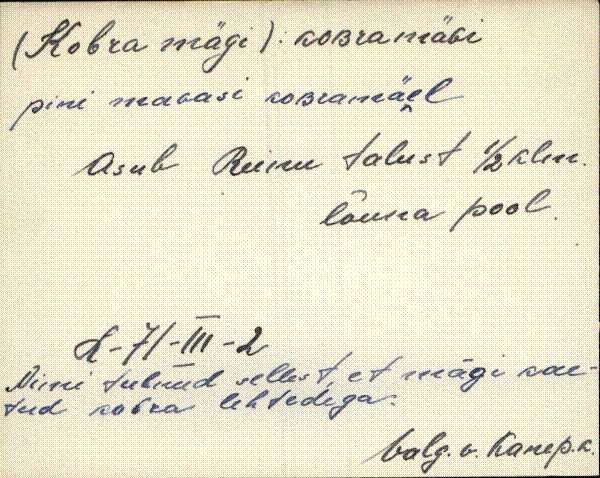 (Kobra mägi): KOBRAMÄGI
pini magasi KOBRAMÄEL
Asub Reinu talust 1/2 klm.
lõuna pool.
L-71-III-2
Nimi tulnud sellest, et mägi kae-
tud kobra lehtedega.
Valg. v. Kanep. k.